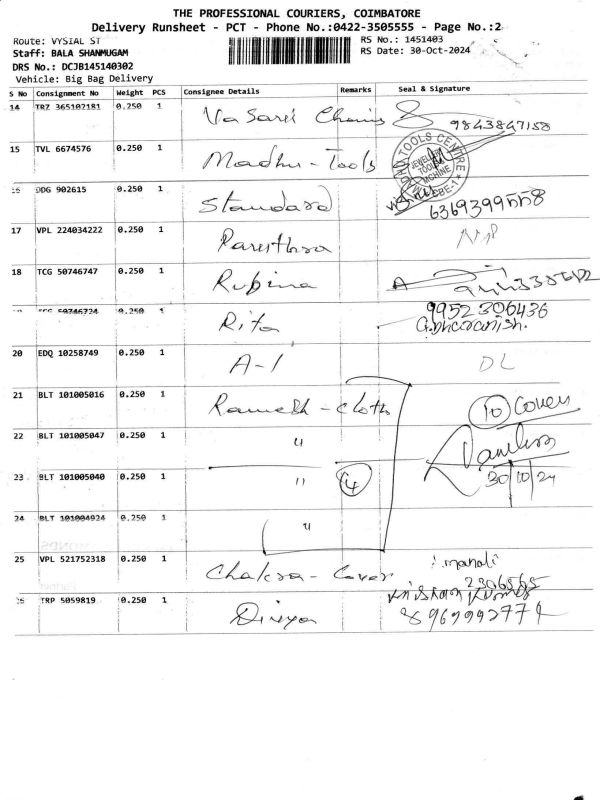 THE PROFESSIONAL COURIERS, COIMBATORE
Delivery Runsheet - PCT - Phone No.:0422-3505555 - Page No.:2
Route: VYSIAL ST
Staff: BALA SHANMUGAM
DRS No.: DCJB145140302
Vehicle: Big Bag Delivery
RS No.: 1451403
RS Date: 30-Oct-2024
S No Consignment No Weight PCS Consignee Details Remarks Seal & Signature
14 TRZ 365102181 0.250 1 Vasavi Chains 9843847158
15 TVL 6674576 0.250 1 Madhu - Tools TOOLS CENTRE JEWELLERY TOOLS CBE-1
16 DDG 902615 0.250 1 Standard 6369399558
17 VPL 224034222 0.250 1
18 TCG 50746747 0.250 1 Rubina
0.250 1 Rita 9952306436
G.Dharanish.
20 EDQ 10258749 0.250 1 A-1 DL
21 BLT 101005016 0.250 1 Ramesh - cloth 10 Cover
22 BLT 101005047 0.250 1 "
23 BLT 101005040 0.250 1 " 4 30/10/24
24 BLT 101004924 0.250 1 "
25 VPL 521752318 0.250 1 Chakra - Cover
2306565
TRP 5059819 0.250 1 Divya